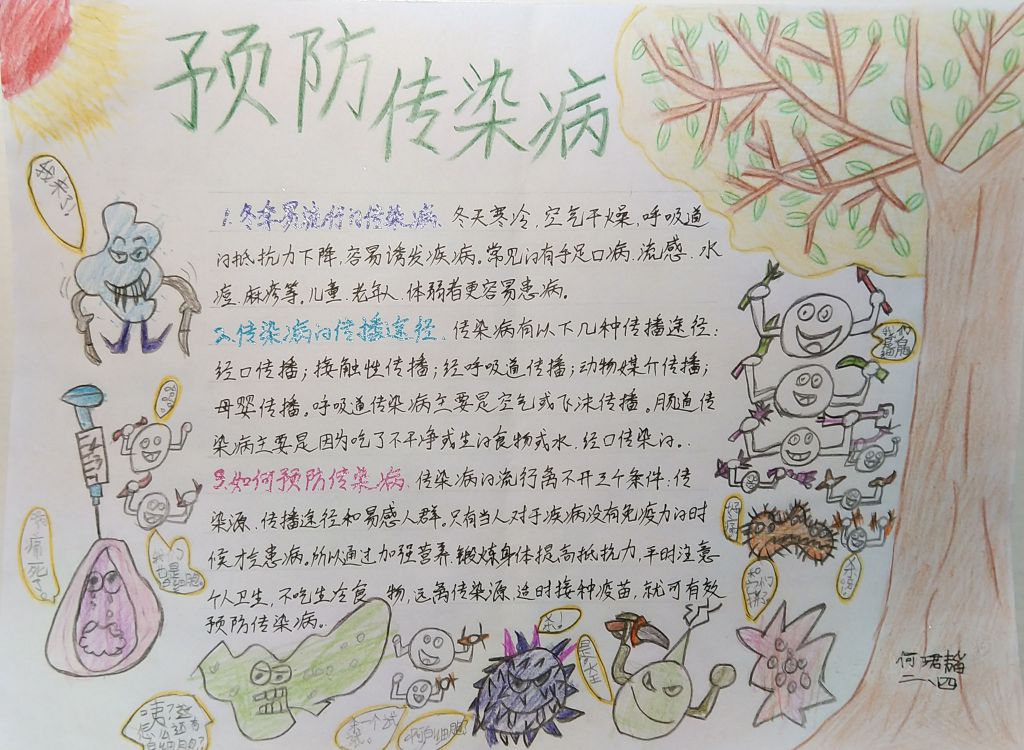 预防传染病
我来了!
1.冬季易流行的传染病 冬天寒冷,空气干燥,呼吸道
的抵抗力下降,容易诱发疾病。常见的有手足口病、流感、水
痘、麻疹等。儿童、老年人、体弱者更容易患病。
2.传染病的传播途径. 传染病有以下几种传播途径:
经口传播;接触性传播;经呼吸道传播;动物媒介传播;
母婴传播。呼吸道传染病主要是空气或飞沫传播。肠道传
染病主要是因为吃了不干净或生的食物或水,经口传染的。
3.如何预防传染病. 传染病的流行离不开三个条件:传
染源、传播途径和易感人群。只有当人对于疾病没有免疫力的时
候才会患病。所以通过加强营养、锻炼身体提高抵抗力,平时注意
个人卫生,不吃生冷食物,远离传染源、适时接种疫苗,就可有效
预防传染病。
我们是白细胞
我们是白细胞
杀!
何珺韬
二、四